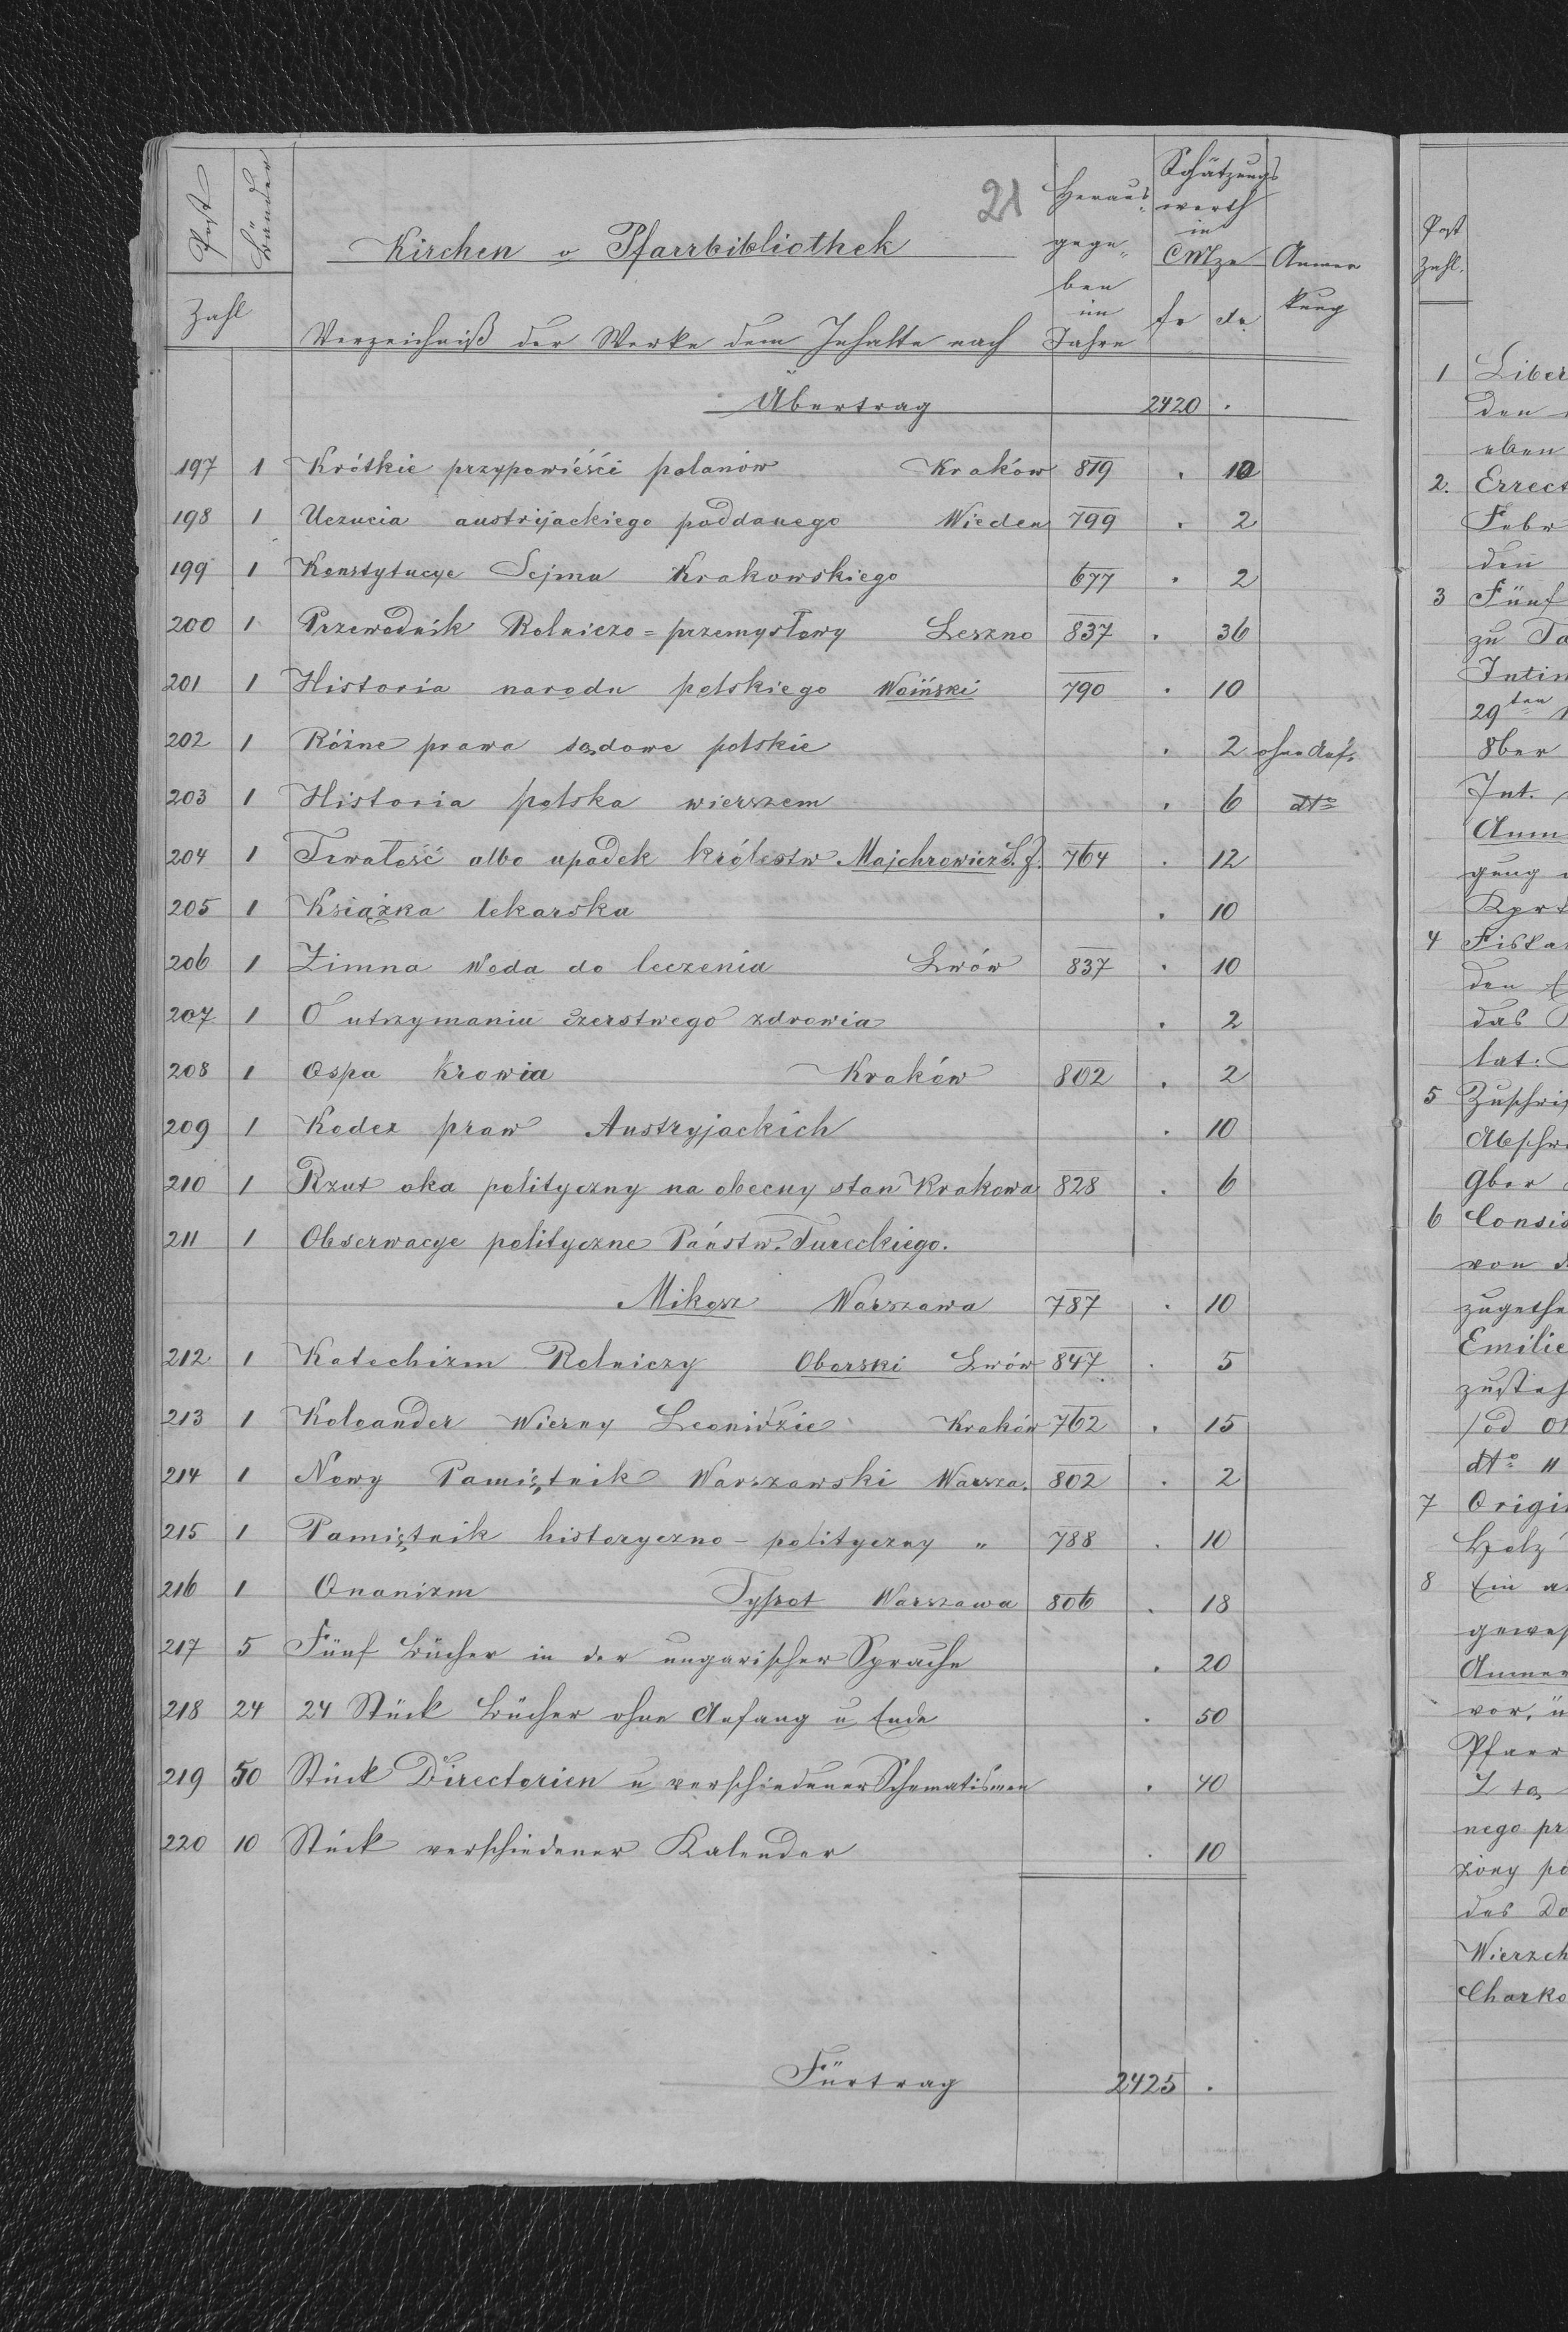 21
Post Bänder
Zahl
Kirchen u Pfarrbibliothek
Verzeichniß der Werke dem Inhalte nach
Heraus-
gege-
ben
im
Jahre
Schätzungs
werth
in
CMze
fr xr
Anmer
kung
Übertrag 2420 .
197 1 Krótkie przypowiéści polanów Kraków 819 . 10
198 1 Uczucia austrijackiego poddanego Wieden 799 . 2
199 1 Konstytucye Sejmu Krakowskiego 677 . 2
200 1 Przewodnik Rolniczo=przemysłowy Leszno 837 . 36
201 1 Historia narodu polskiego 790 . 10
202 1 Różne prawa sądowe polskie . 2 ohne Auf.
203 1 Historia polska wierszem . 6 dto
204 1 Trwałość albo upadek królestw Majchrowicz S.J. 764 . 12
205 1 Książka lekarska . 10
206 1 Zimna Woda do leczenia Lwów 837 . 10
207 1 O utrzymaniu czerstwego zdrowia . 2
208 1 Ospa Krowia Kraków 802 . 2
209 1 Kodex praw Austryjackich . 10
210 1 Rzut oka polityczny na obecny stan Krakowa 828 . 6
211 1 Obserwacye polityczne Państw. Tureckiego.
Mikosz Warszawa 787 . 10
212 1 Katechizm Rolniczy Oborski Lwów 847 . 5
213 1 Koloander Wierny Leonidzie Kraków 762 . 15
214 1 Nowy Pamiętnik Warszawski Warsza. 802 . 2
215 1 Pamiętnik historyczno-polityczny " 788 . 10
216 1 Onanizm Tyssot Warszawa 806 . 18
217 5 Fünf Bücher in der ungarischer Sprache . 20
218 24 24 Stück Bücher ohne Anfang u Ende . 50
219 50 Stück Directorien u verschiedener Schematismen . 40
220 10 Stück verschiedener Kalender . 10
Fürtrag 2425 .
Post
Zahl.
1 Liber
den
eben
2. Errect
Febr
den
3 Fünf
zu Ta
Intim
29ten
8ber
Int.
Anm
gung
4 Fiskal
den
das
lat:
5 Zuschrif
Abschr
9ber
6 Consis
von
zugethe
Emilie
7 Origin
Holz
8 Ein
gewes
Anmer
vor, ü
Pfarr
nego pr
żony po
des Do
Wierzch
Charko